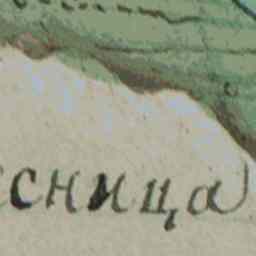 сница